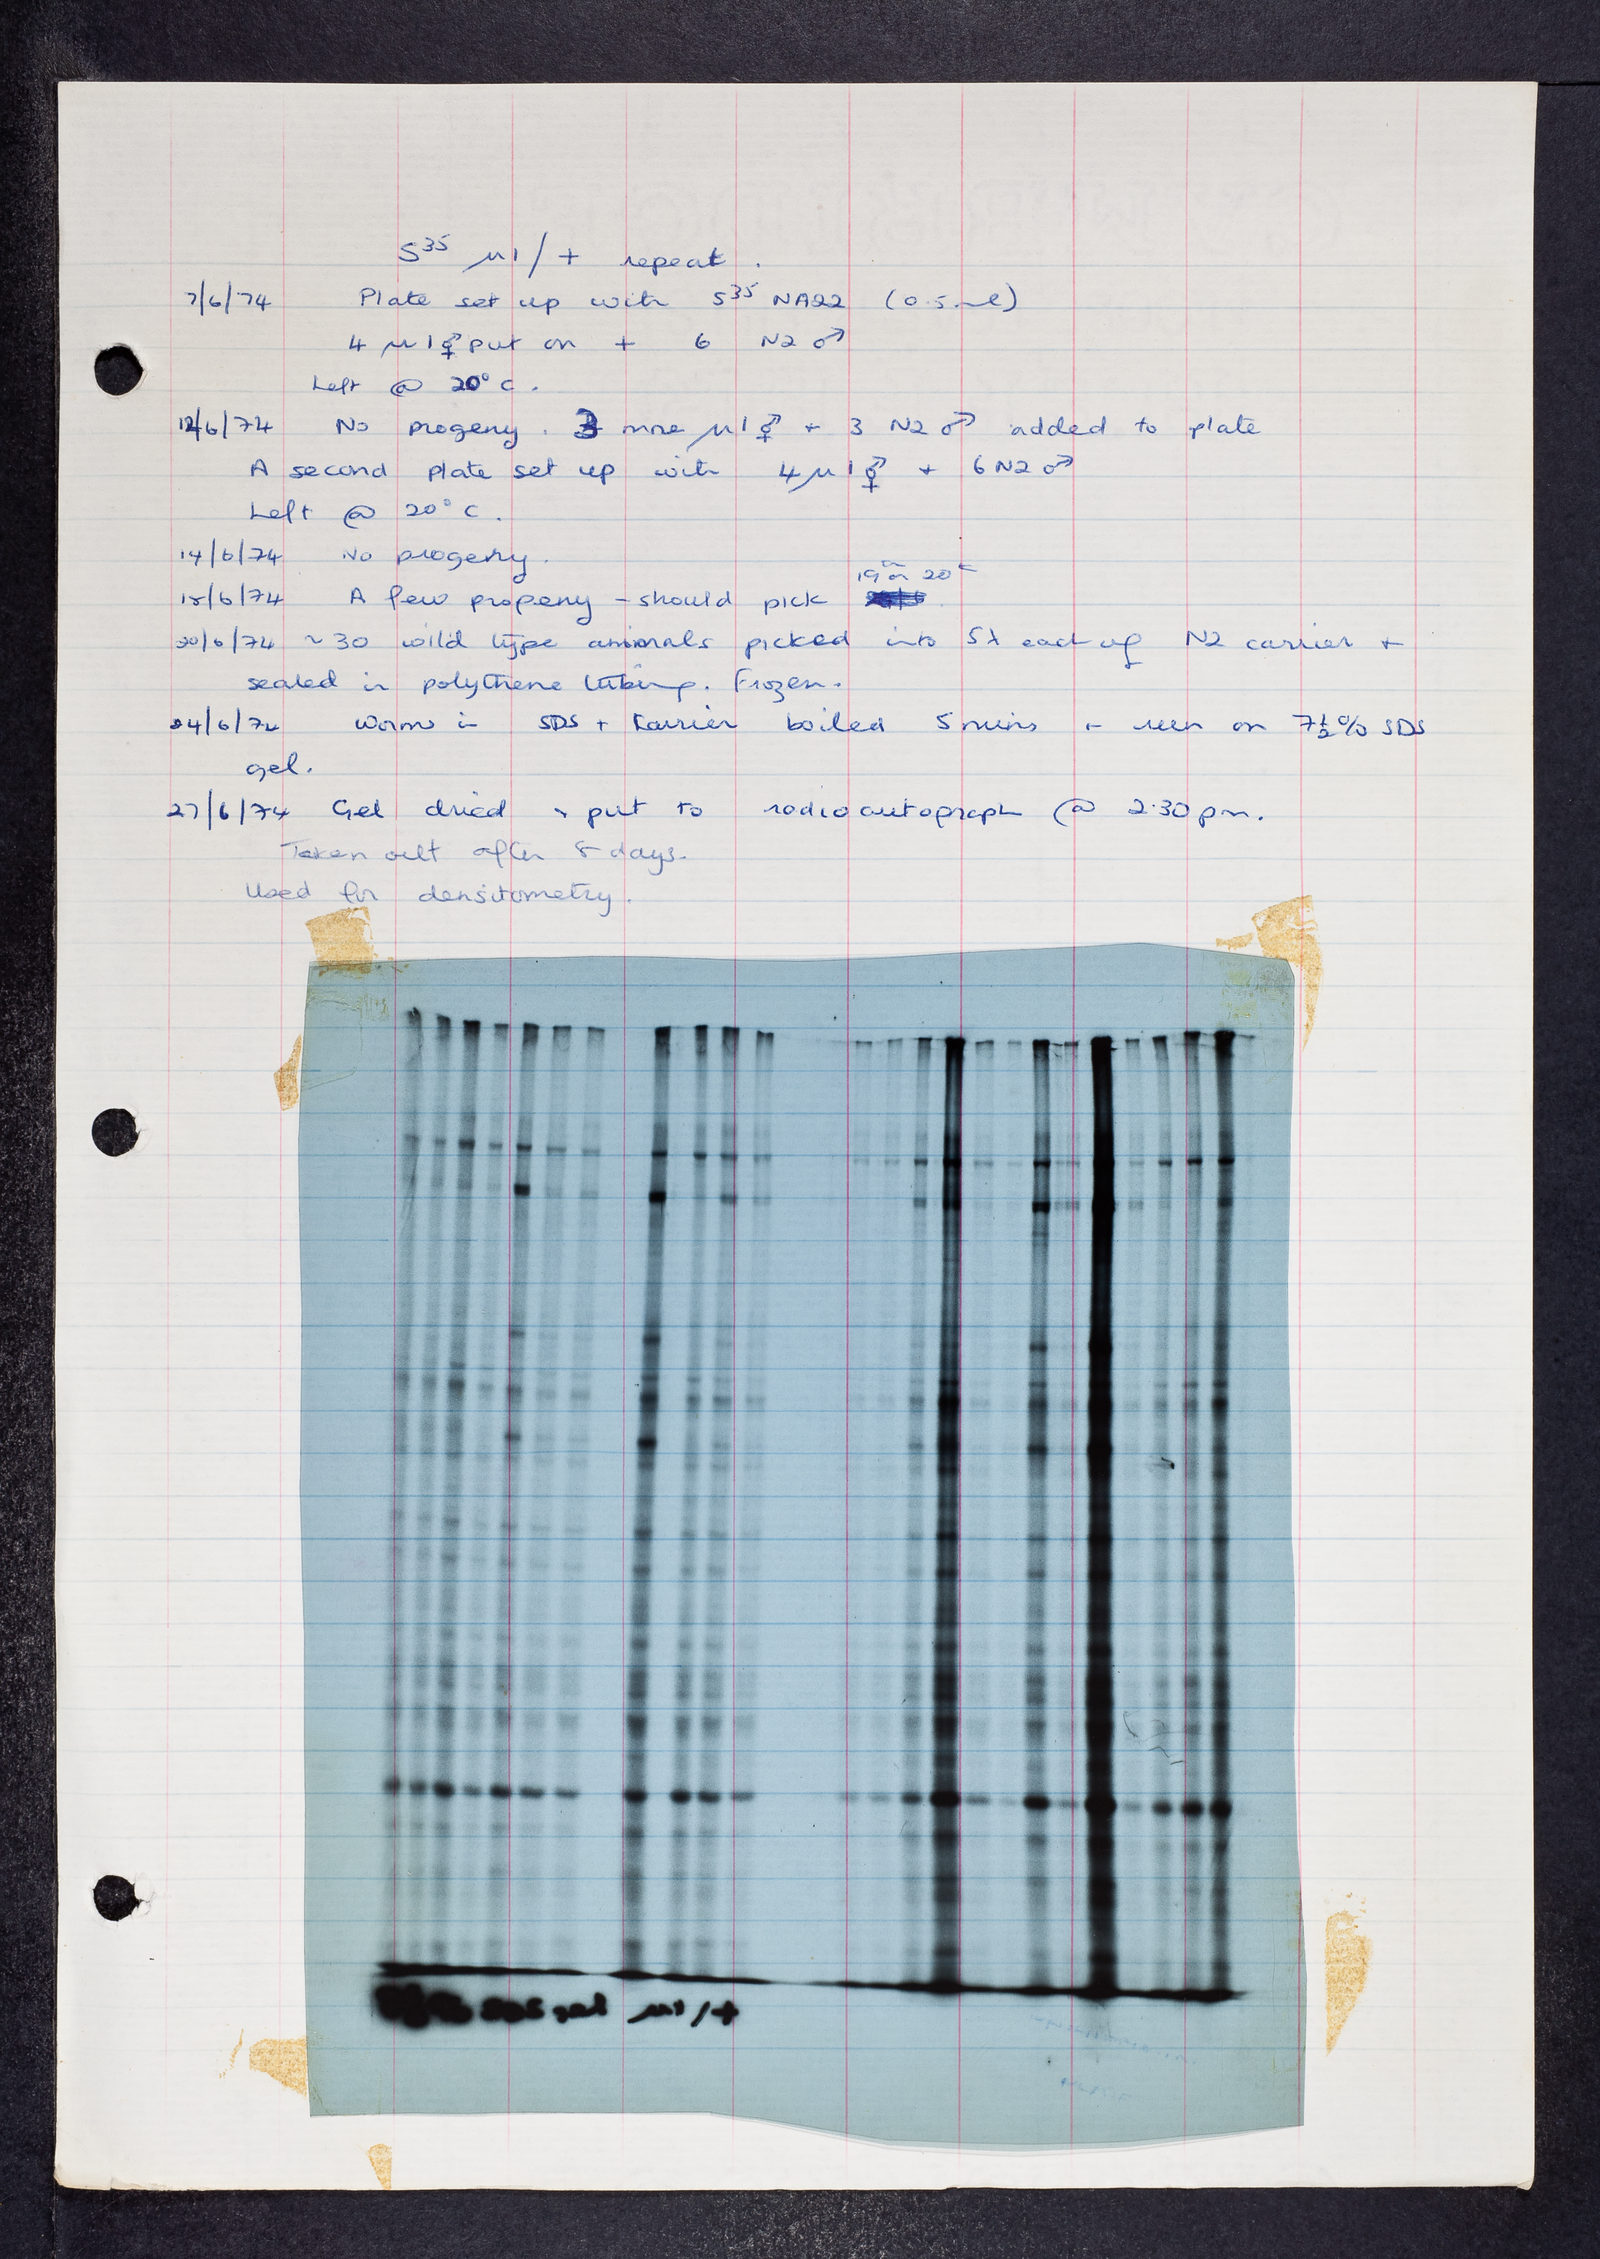 S³⁵ μ1/+ repeat.
7/6/74 Plate set up with S³⁵ NA22 (0.5ml)
4 μ1 ⚥ put on + 6 N2 ♂
Left @ 20°C.
12/6/74 No progeny. 3 more μ1 ⚥ + 3 N2 ♂ added to plate
A second plate set up with 4 μ1 ⚥ + 6 N2 ♂
Left @ 20°C.
14/6/74 No progeny.
19 or 20
/6/74 A few progeny - should pick
20/6/74 ~30 wild type animals picked into 5λ each of N2 carrier +
sealed in polythene tubing. Frozen.
24/6/74 Worms in SDS + carrier boiled 5 mins + run on 7½% SDS
gel.
27/6/74 Gel dried + put to radioautograph @ 2.30pm.
Taken out after 8 days.
Used for densitometry.
μ1/+